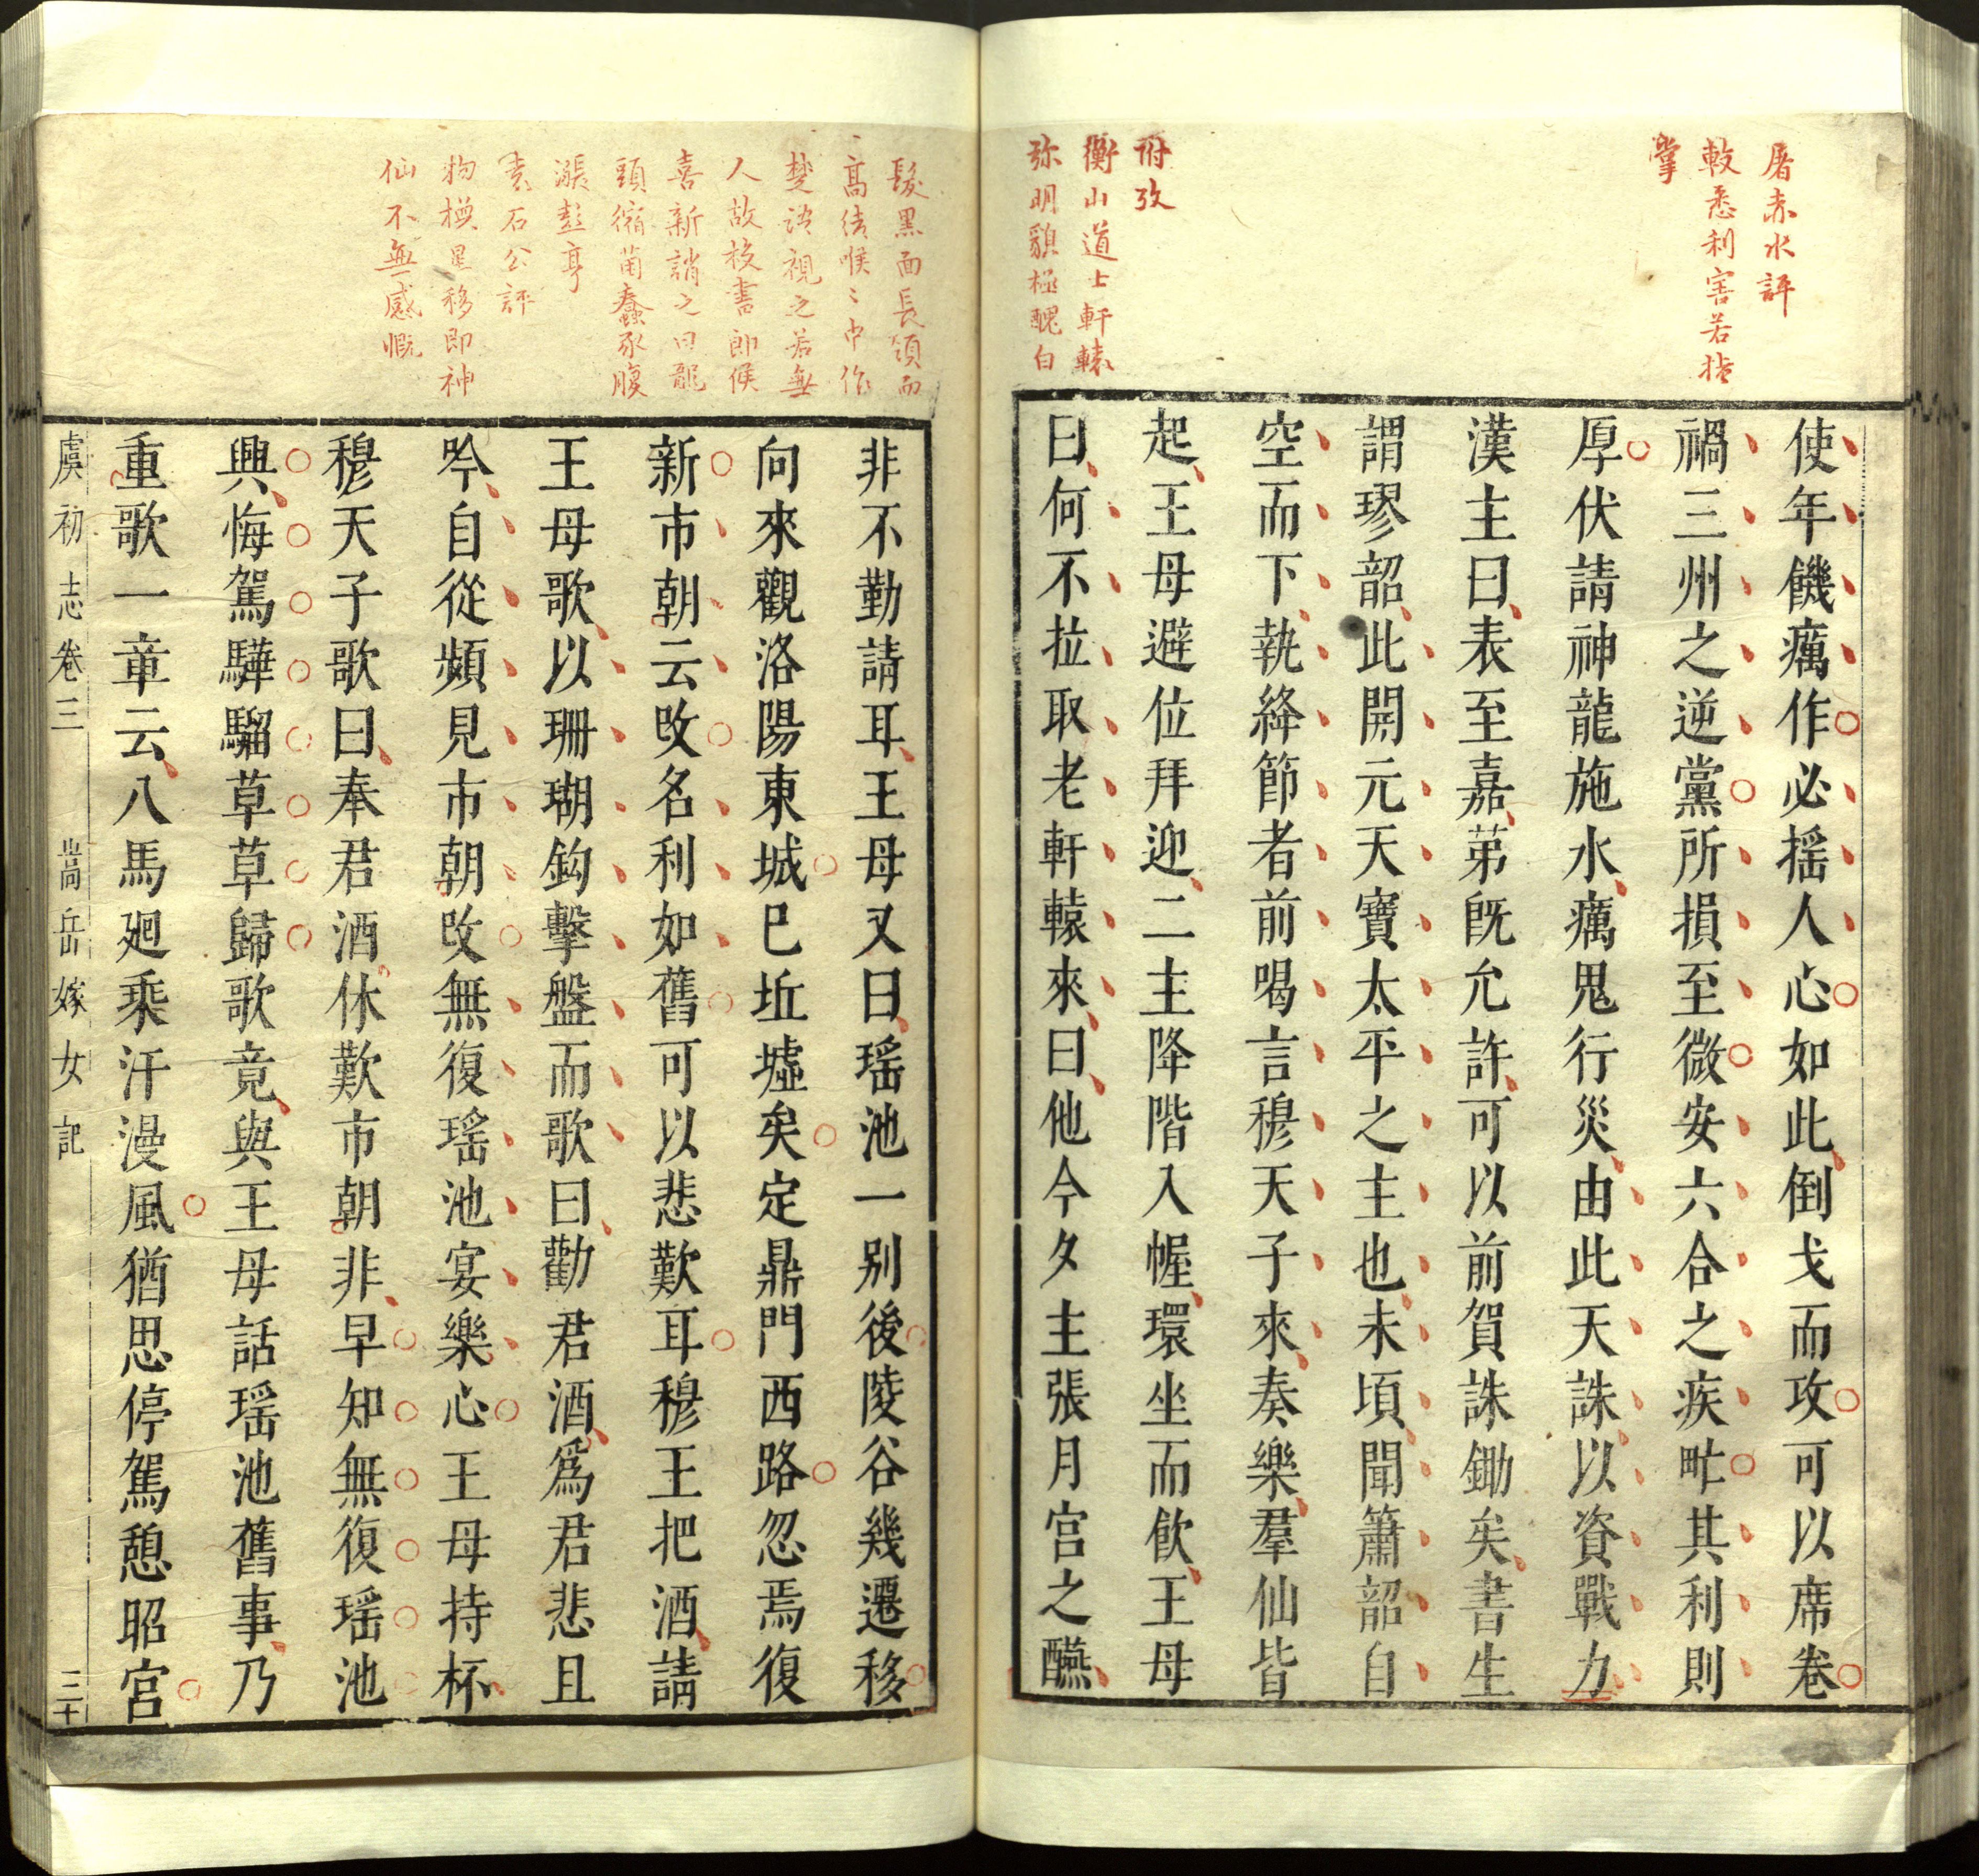 屠赤水評
較悉利害若指
掌
附攷
衡山道士軒轅
弥明貌極醜白
使年饑癘作必揺人心如此倒戈而攻可以席卷
禍三州之逆黨所損至微安六合之疾甿其利則
厚伏請神龍施水癘鬼行災由此天誅以資戰力
漢主曰表至嘉苐旣允許可以前賀誅鋤矣書生
謂璆韶此開元天寶太平之主也未頃聞簫韶自
空而下執絳節者前喝言穆天子來奏樂羣仙皆
起王母避位拜迎二主降階入幄環坐而飲王母
曰何不拉取老軒轅來曰他今夕主張月宫之醼
髮黒面長頸而
高結喉〻中作
楚語視之若無
人故校書郎侯
喜新誚之曰龍
頭縮菌蠢豕腹
漲彭亨
袁石公評
物換星移即神
仙不無感慨
非不勤請耳王母又曰瑶池一别後陵谷幾遷移
向來觀洛陽東城巳坵墟矣定鼎門西路忽焉復
新市朝云攺名利如舊可以悲歎耳穆王把酒請
王母歌以珊瑚鈎擊盤而歌曰勸君酒爲君悲且
吟自從頻見市朝攺無復瑶池宴樂心王母持杯
穆天子歌曰奉君酒休歎市朝非早知無復瑶池
興悔駕驊騮草草歸歌竟與王母話瑶池舊事乃
重歌一章云八馬廻乘汗漫風猶思停駕憩昭宫
虞初志卷三 嵩岳嫁女記 三十